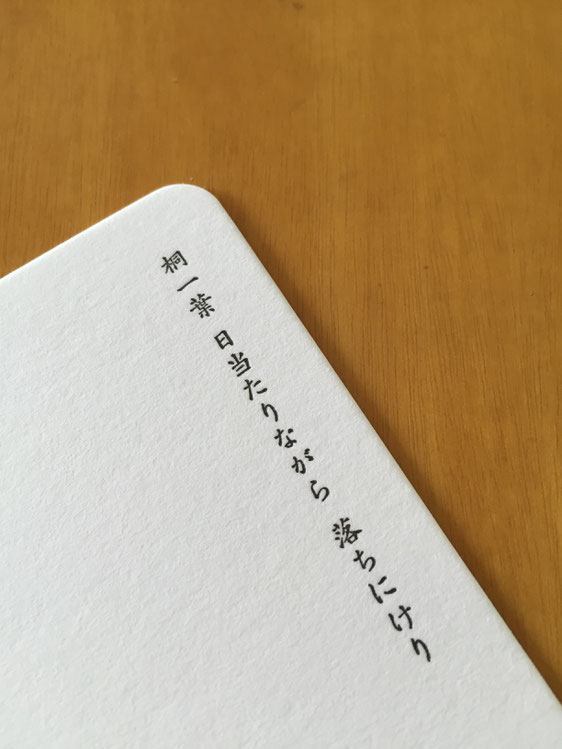 桐一葉 日当たりながら 落ちにけり